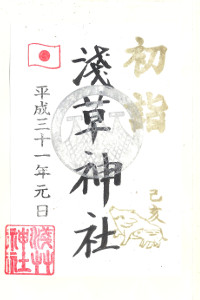 初詣
己亥
淺草神社
平成三十一年元日
淺草
神社